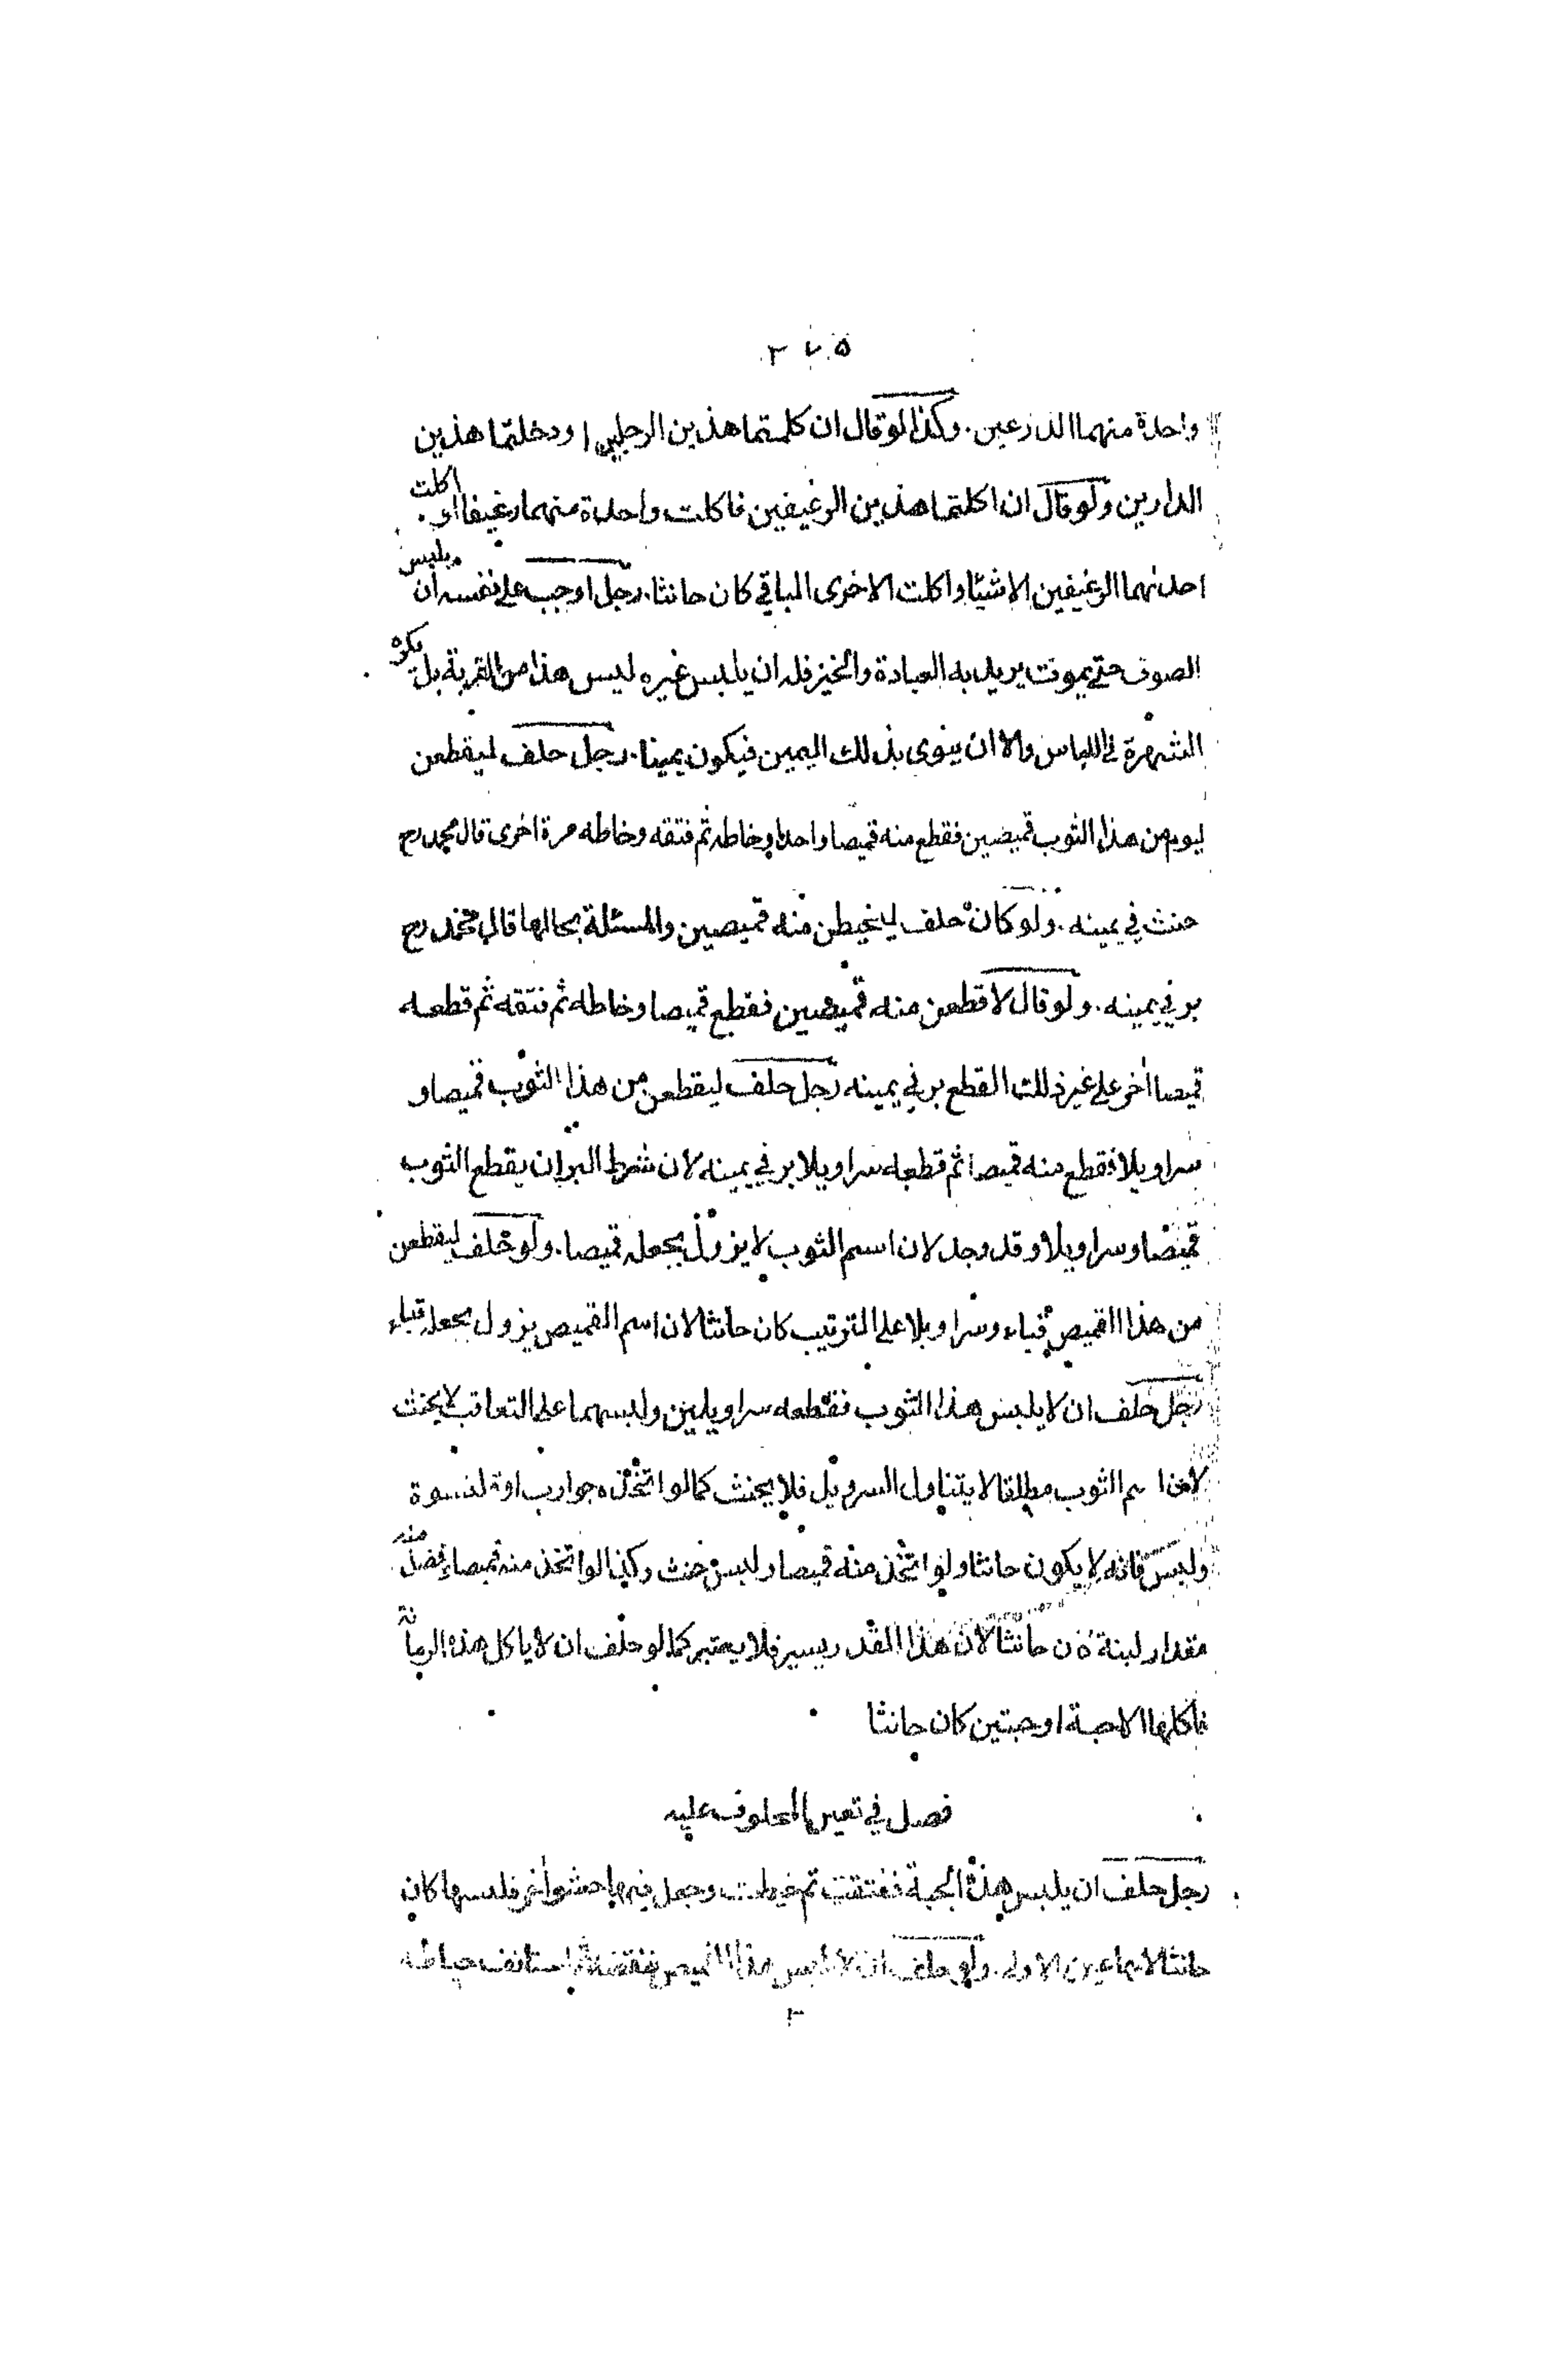 ٣٧٥
واحدة منهما الدرعين. وكذا لو قال ان كلمتما هذين الرجلين او دخلتما هذين
الدارين ولو قال ان اكلتما هذين الرغيفين فاكلت واحدة منهما رغيفا او اكلت
احدنهما الرغيفين الا شيئا واكلت الاخرى الباقي كان حانثا. رجل اوجب على نفسه ان يلبس
الصوف حتى يموت يريد به العبادة والخير فله ان يلبس غيره ليس هذا من القربة بل يكره
الشهرة في اللباس والا ان ينوى بذلك اليمين فيكون يمينا. رجل حلف ليقطعن
ليوم من هذا الثوب قميصين فقطع منه قميصا واحدا وخاطه ثم فتقه وخاطه مرة اخرى قال محمد رح
حنث في يمينه. ولو كان حلف ليخيطن منه قميصين والمسئلة بحالها قال محمد رح
بر في يمينه. ولو قال لاقطعن منه قميصين فقطع قميصا وخاطه ثم فتقه ثم قطعه
قميصا اخر على غير ذلك القطع بر في يمينه رجل حلف ليقطعن من هذا الثوب قميصا و
سراويلا فقطع منه قميصا ثم قطعه سراويلا بر في يمينه لان شرط البر ان يقطع الثوب
قميصا وسراويلا وقد وجد لان اسم الثوب لا يزول بجعله قميصا. ولو حلف ليقطعن
من هذا القميص قباء وسراويلا على الترتيب كان حانثا لان اسم القميص يزول بجعله قباء
رجل حلف ان لا يلبس هذا الثوب فقطعه سراويلين ولبسهما على التعاقب لا يحنث
لان اسم الثوب مطلقا لا يتناول السرويل فلا يحنث كما لو اتخذه جوارب او قلنسوة
ولبس فانه لا يكون حانثا ولو اتخذ منه قميصا ولبس حنث وكذا لو اتخذ منه قميصا وفضل منه
مقدار لبنة كان حانثا لان هذا القدر يسير فلا يعتبر كما لو حلف ان لا ياكل هذه الرمانة
فاكلها الا حبة او حبتين كان حانثا
فصل في تعيين المحلوف عليه
رجل حلف ان يلبس هذه الجبة ففتقت ثم خيطت وجعل فيها حشوا اخر فلبسها كان
حانثا لانها عين الاولى. ولو حلف ان لا يلبس هذا القميص فنقضه ثم استانف خياطته
٣